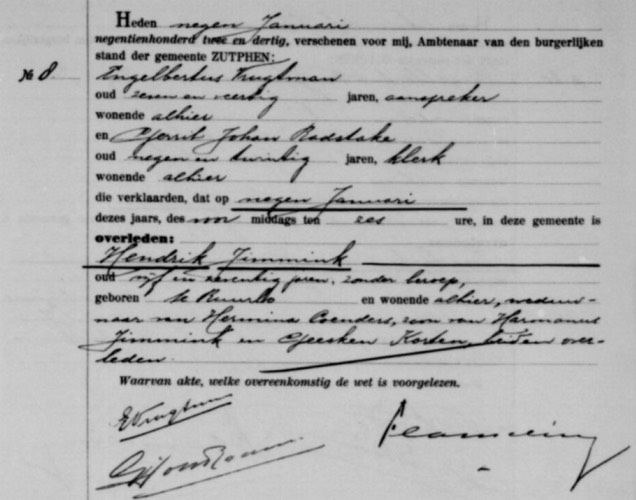 Heden negen Januari
negentienhonderd twee en dertig, verschenen voor mij, Ambtenaar van den burgerlijken
stand der gemeente ZUTPHEN:
№ 8 Engelbertus Krugtman
oud zeven en veertig jaren, aanspreker
wonende alhier
en Gerrit Johan Radstake
oud negen en twintig jaren, klerk
wonende alhier
die verklaarden, dat op negen Januari
dezes jaars, des voor middags ten zes ure, in deze gemeente is
overleden:
Hendrik Jimmink
oud vijf en zeventig jaren, zonder beroep,
geboren te Ruurlo en wonende alhier, weduw-
naar van Hermina Coenders, zoon van Harmanus
Jimmink en Geesken Korten, beiden over-
leden.
Waarvan akte, welke overeenkomstig de wet is voorgelezen.